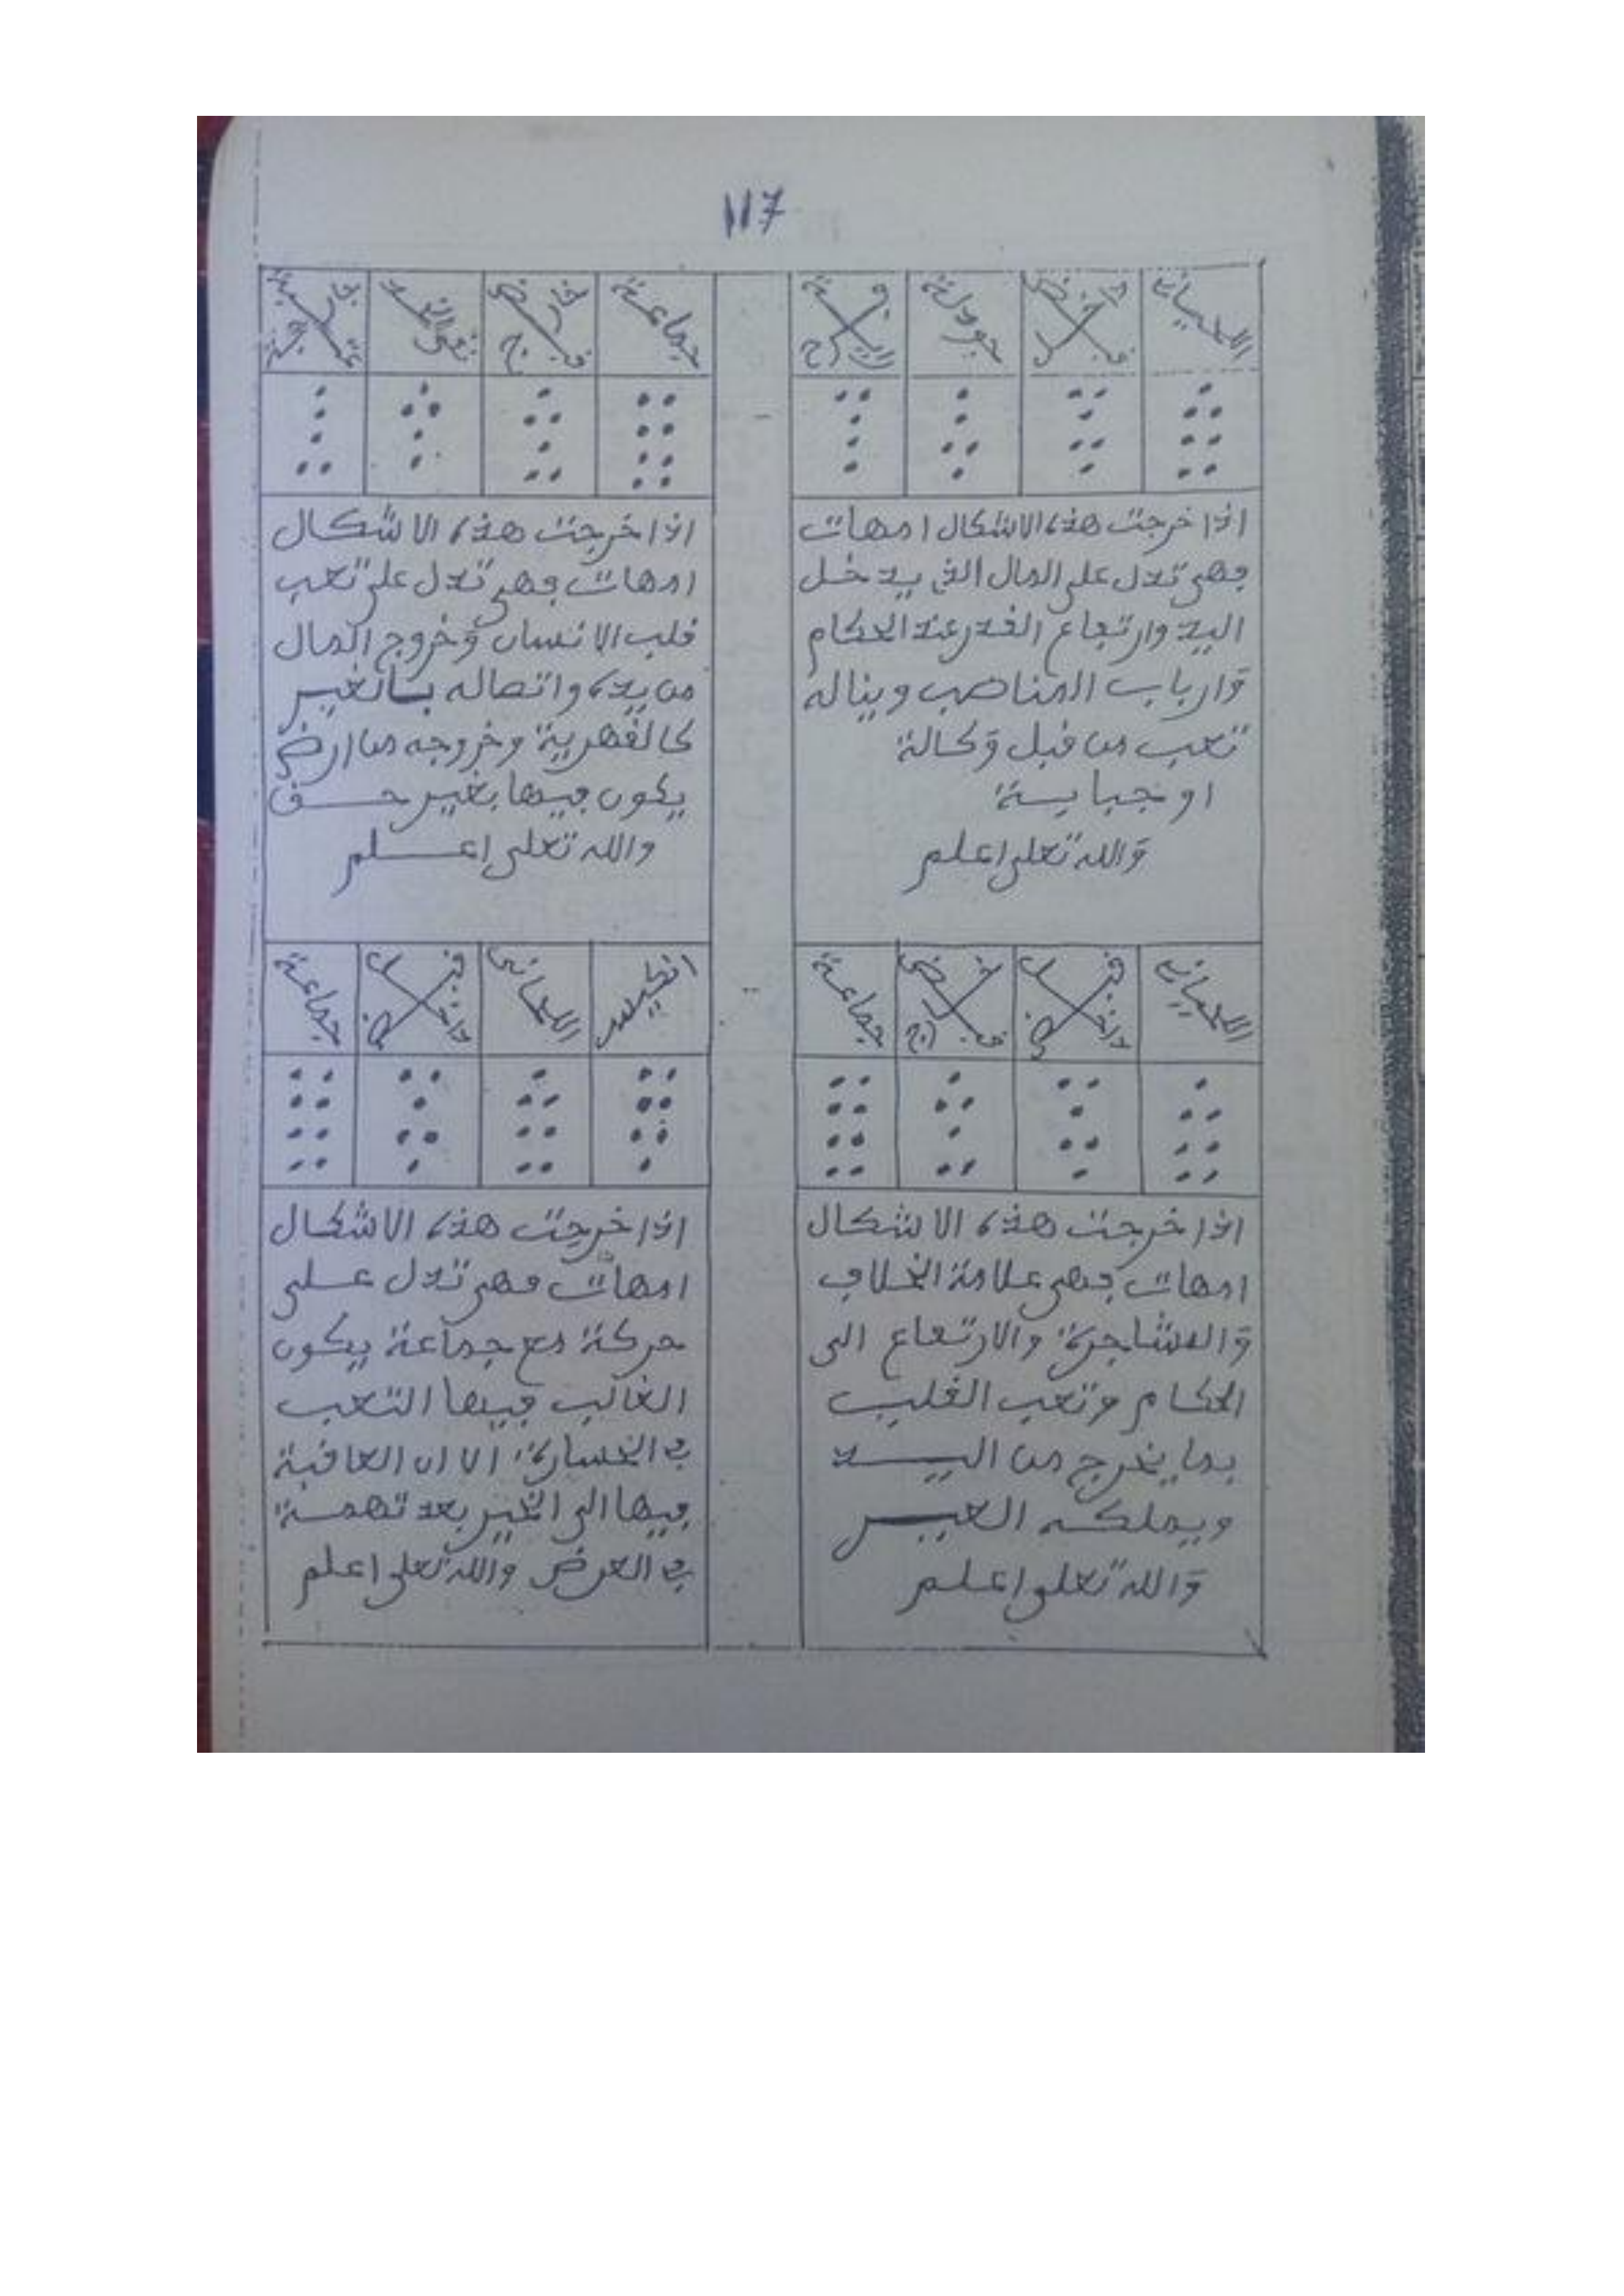 117
اللحيان
قبض داخل
جودلة
راية فرح
اذا خرجت هذه الاشكال امهات
فهي تدل على المال الذي يدخل
اليد وارتفاع القدر عند الحكام
وارباب المناصب ويناله
تعب من قبل وكالة
او جباية
والله تعلى اعلم
جماعة
قبض خارج
نقي الخد
عتبة خارجة
اذا خرجت هذه الاشكال
امهات فهي تدل على تعب
قلب الانسان وخروج المال
من يده واتصاله بالغير
كالقهرية وخروجه من ارض
يكون فيها بغير حق
والله تعلى اعلم
اللحيان
قبض داخل
قبض خارج
جماعة
اذا خرجت هذه الاشكال
امهات فهي علامة الخلاف
والمشاجرة والارتفاع الى
الحكام وتعب القلب
بما يخرج من اليد
ويملكه الغير
والله تعلى اعلم
انكيس
اللحيان
قبض داخل
جماعة
اذا خرجت هذه الاشكال
امهات فهي تدل على
حركة مع جماعة يكون
الغالب فيها التعب
في الخسارة الا ان العاقبة
فيها الى الخير بعد تهمة
في العرض والله تعلى اعلم